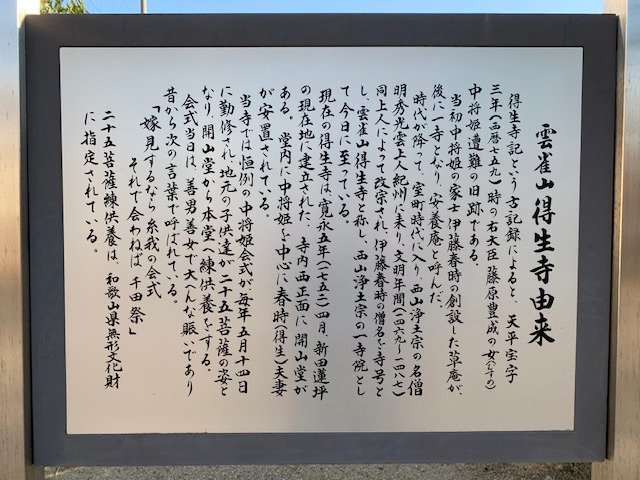 雲雀山得生寺由来
得生寺記という古記録によると、天平宝字
三年(西暦七五九)時の右大臣藤原豊成の女(むすめ)
中将姫遭難の旧跡である。
当初中将姫の家士伊藤春時の創設した草庵が、
後に一寺となり、安養庵と呼んだ。
時代が降って、室町時代に入り西山浄土宗の名僧
明秀光雲上人紀州に来り、文明年間(一四六九〜一四八七)
同上人によって改宗され、伊藤春時の僧名を寺号と
し、雲雀山得生寺と称し、西山浄土宗の一寺院とし
て今日に至っている。
現在の得生寺は、寛永五年(一七五二)四月、新田蓮坪
の現在地に建立された、寺内西正面に開山堂が
ある。堂内に中将姫を中心に春時(得生)夫妻
が安置されている。
当寺では恒例の中将姫会式が、毎年五月十四日
に勤修され、地元の子供達が二十五菩薩の姿と
なり、開山堂から本堂へ練供養をする。
会式当日は、善男善女で大へんな賑いであり
昔から次の言葉で呼ばれている。
「嫁見するなら糸我の会式
それで会わねば、千田祭」
二十五菩薩練供養は、和歌山県無形文化財
に指定されている。